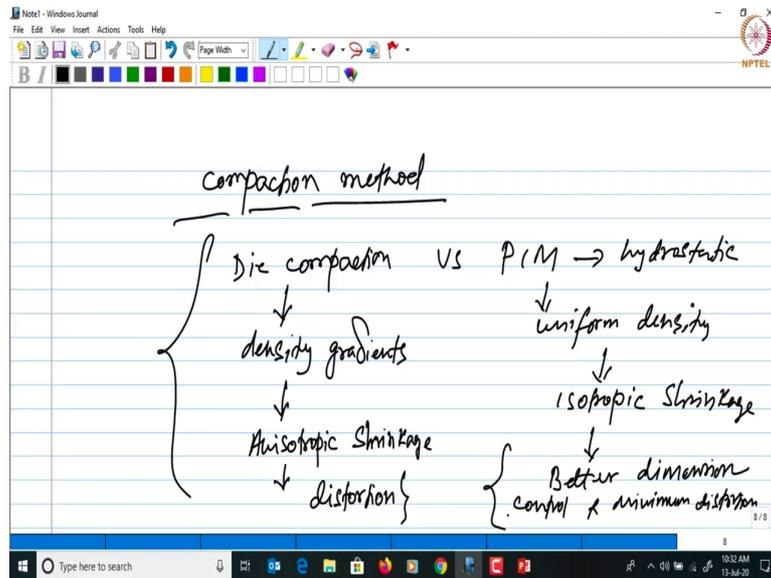 Note1 - Windows Journal
File Edit View Insert Actions Tools Help
Page Width
B I
NPTEL
compaction method
Die compaction vs PIM → hydrostatic
↓ ↓
density gradients uniform density
↓ ↓
Anisotropic Shrinkage Isotropic Shrinkage
↓ ↓
distortion } Better dimension
control & minimum distortion
8/8
8
Type here to search
10:32 AM
13-Jul-20